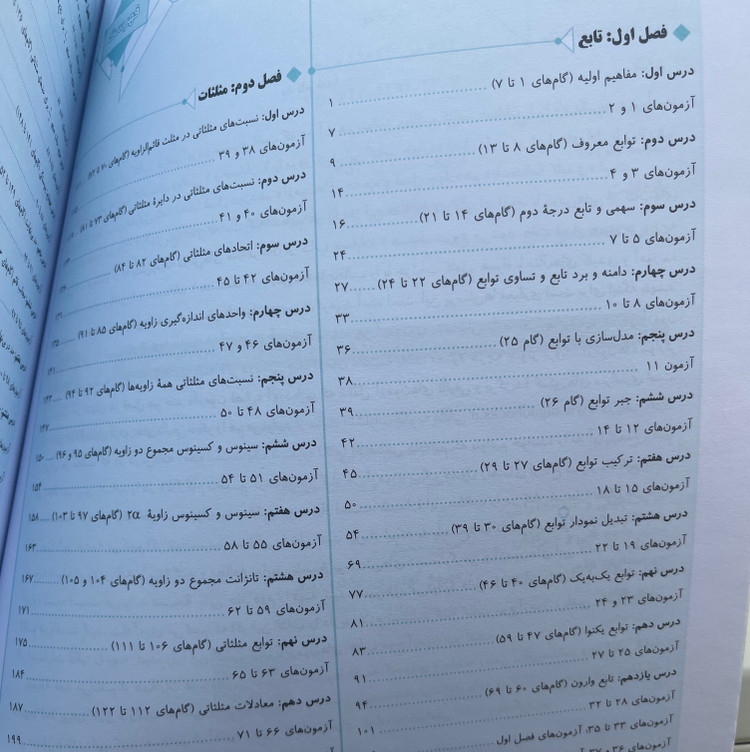 فصل اول: تابع
درس اول: مفاهیم اولیه (گام‌های ۱ تا ۷) ۱
آزمون‌های ۱ و ۲ ۷
درس دوم: توابع معروف (گام‌های ۸ تا ۱۳) ۹
آزمون‌های ۳ و ۴ ۱۴
درس سوم: سهمی و تابع درجهٔ دوم (گام‌های ۱۴ تا ۲۱) ۱۶
آزمون‌های ۵ تا ۷ ۲۴
درس چهارم: دامنه و برد تابع و تساوی توابع (گام‌های ۲۲ تا ۲۴) ۲۷
آزمون‌های ۸ تا ۱۰ ۳۳
درس پنجم: مدل‌سازی با توابع (گام ۲۵) ۳۶
آزمون ۱۱ ۳۸
درس ششم: جبر توابع (گام ۲۶) ۳۹
آزمون‌های ۱۲ تا ۱۴ ۴۲
درس هفتم: ترکیب توابع (گام‌های ۲۷ تا ۲۹) ۴۵
آزمون‌های ۱۵ تا ۱۸ ۵۰
درس هشتم: تبدیل نمودار توابع (گام‌های ۳۰ تا ۳۹) ۵۴
آزمون‌های ۱۹ تا ۲۲ ۶۹
درس نهم: توابع یک‌به‌یک (گام‌های ۴۰ تا ۴۶) ۷۷
آزمون‌های ۲۳ و ۲۴ ۸۱
درس دهم: توابع یکنوا (گام‌های ۴۷ تا ۵۹) ۸۳
آزمون‌های ۲۵ تا ۲۷ ۹۱
درس یازدهم: تابع وارون (گام‌های ۶۰ تا ۶۹) ۹۴
آزمون‌های ۲۸ تا ۳۲ ۱۰۱
آزمون‌های ۳۳ تا ۳۵: آزمون‌های فصل اول
آزمون‌های ۳۶ و ۳۷
فصل دوم: مثلثات
درس اول: نسبت‌های مثلثاتی در مثلث قائم‌الزاویه (گام‌های ۷۰ تا ۷۲)
آزمون‌های ۳۸ و ۳۹
درس دوم: نسبت‌های مثلثاتی در دایرهٔ مثلثاتی (گام‌های ۷۳ تا ۸۱)
آزمون‌های ۴۰ و ۴۱
درس سوم: اتحادهای مثلثاتی (گام‌های ۸۲ تا ۸۴)
آزمون‌های ۴۲ تا ۴۵
درس چهارم: واحدهای اندازه‌گیری زاویه (گام‌های ۸۵ تا ۹۱)
آزمون‌های ۴۶ و ۴۷ ۱۴۱
درس پنجم: نسبت‌های مثلثاتی همهٔ زاویه‌ها (گام‌های ۹۲ تا ۹۴) ۱۴۳
آزمون‌های ۴۸ تا ۵۰ ۱۴۷
درس ششم: سینوس و کسینوس مجموع دو زاویه (گام‌های ۹۵ و ۹۶) ۱۵۰
آزمون‌های ۵۱ تا ۵۴ ۱۵۴
درس هفتم: سینوس و کسینوس زاویهٔ ۲α (گام‌های ۹۷ تا ۱۰۳) ۱۵۸
آزمون‌های ۵۵ تا ۵۸ ۱۶۳
درس هشتم: تانژانت مجموع دو زاویه (گام‌های ۱۰۴ و ۱۰۵) ۱۶۷
آزمون‌های ۵۹ تا ۶۲ ۱۷۱
درس نهم: توابع مثلثاتی (گام‌های ۱۰۶ تا ۱۱۱) ۱۷۵
آزمون‌های ۶۳ تا ۶۵ ۱۸۴
درس دهم: معادلات مثلثاتی (گام‌های ۱۱۲ تا ۱۲۲) ۱۸۷
آزمون‌های ۶۶ تا ۷۱ ۱۹۹